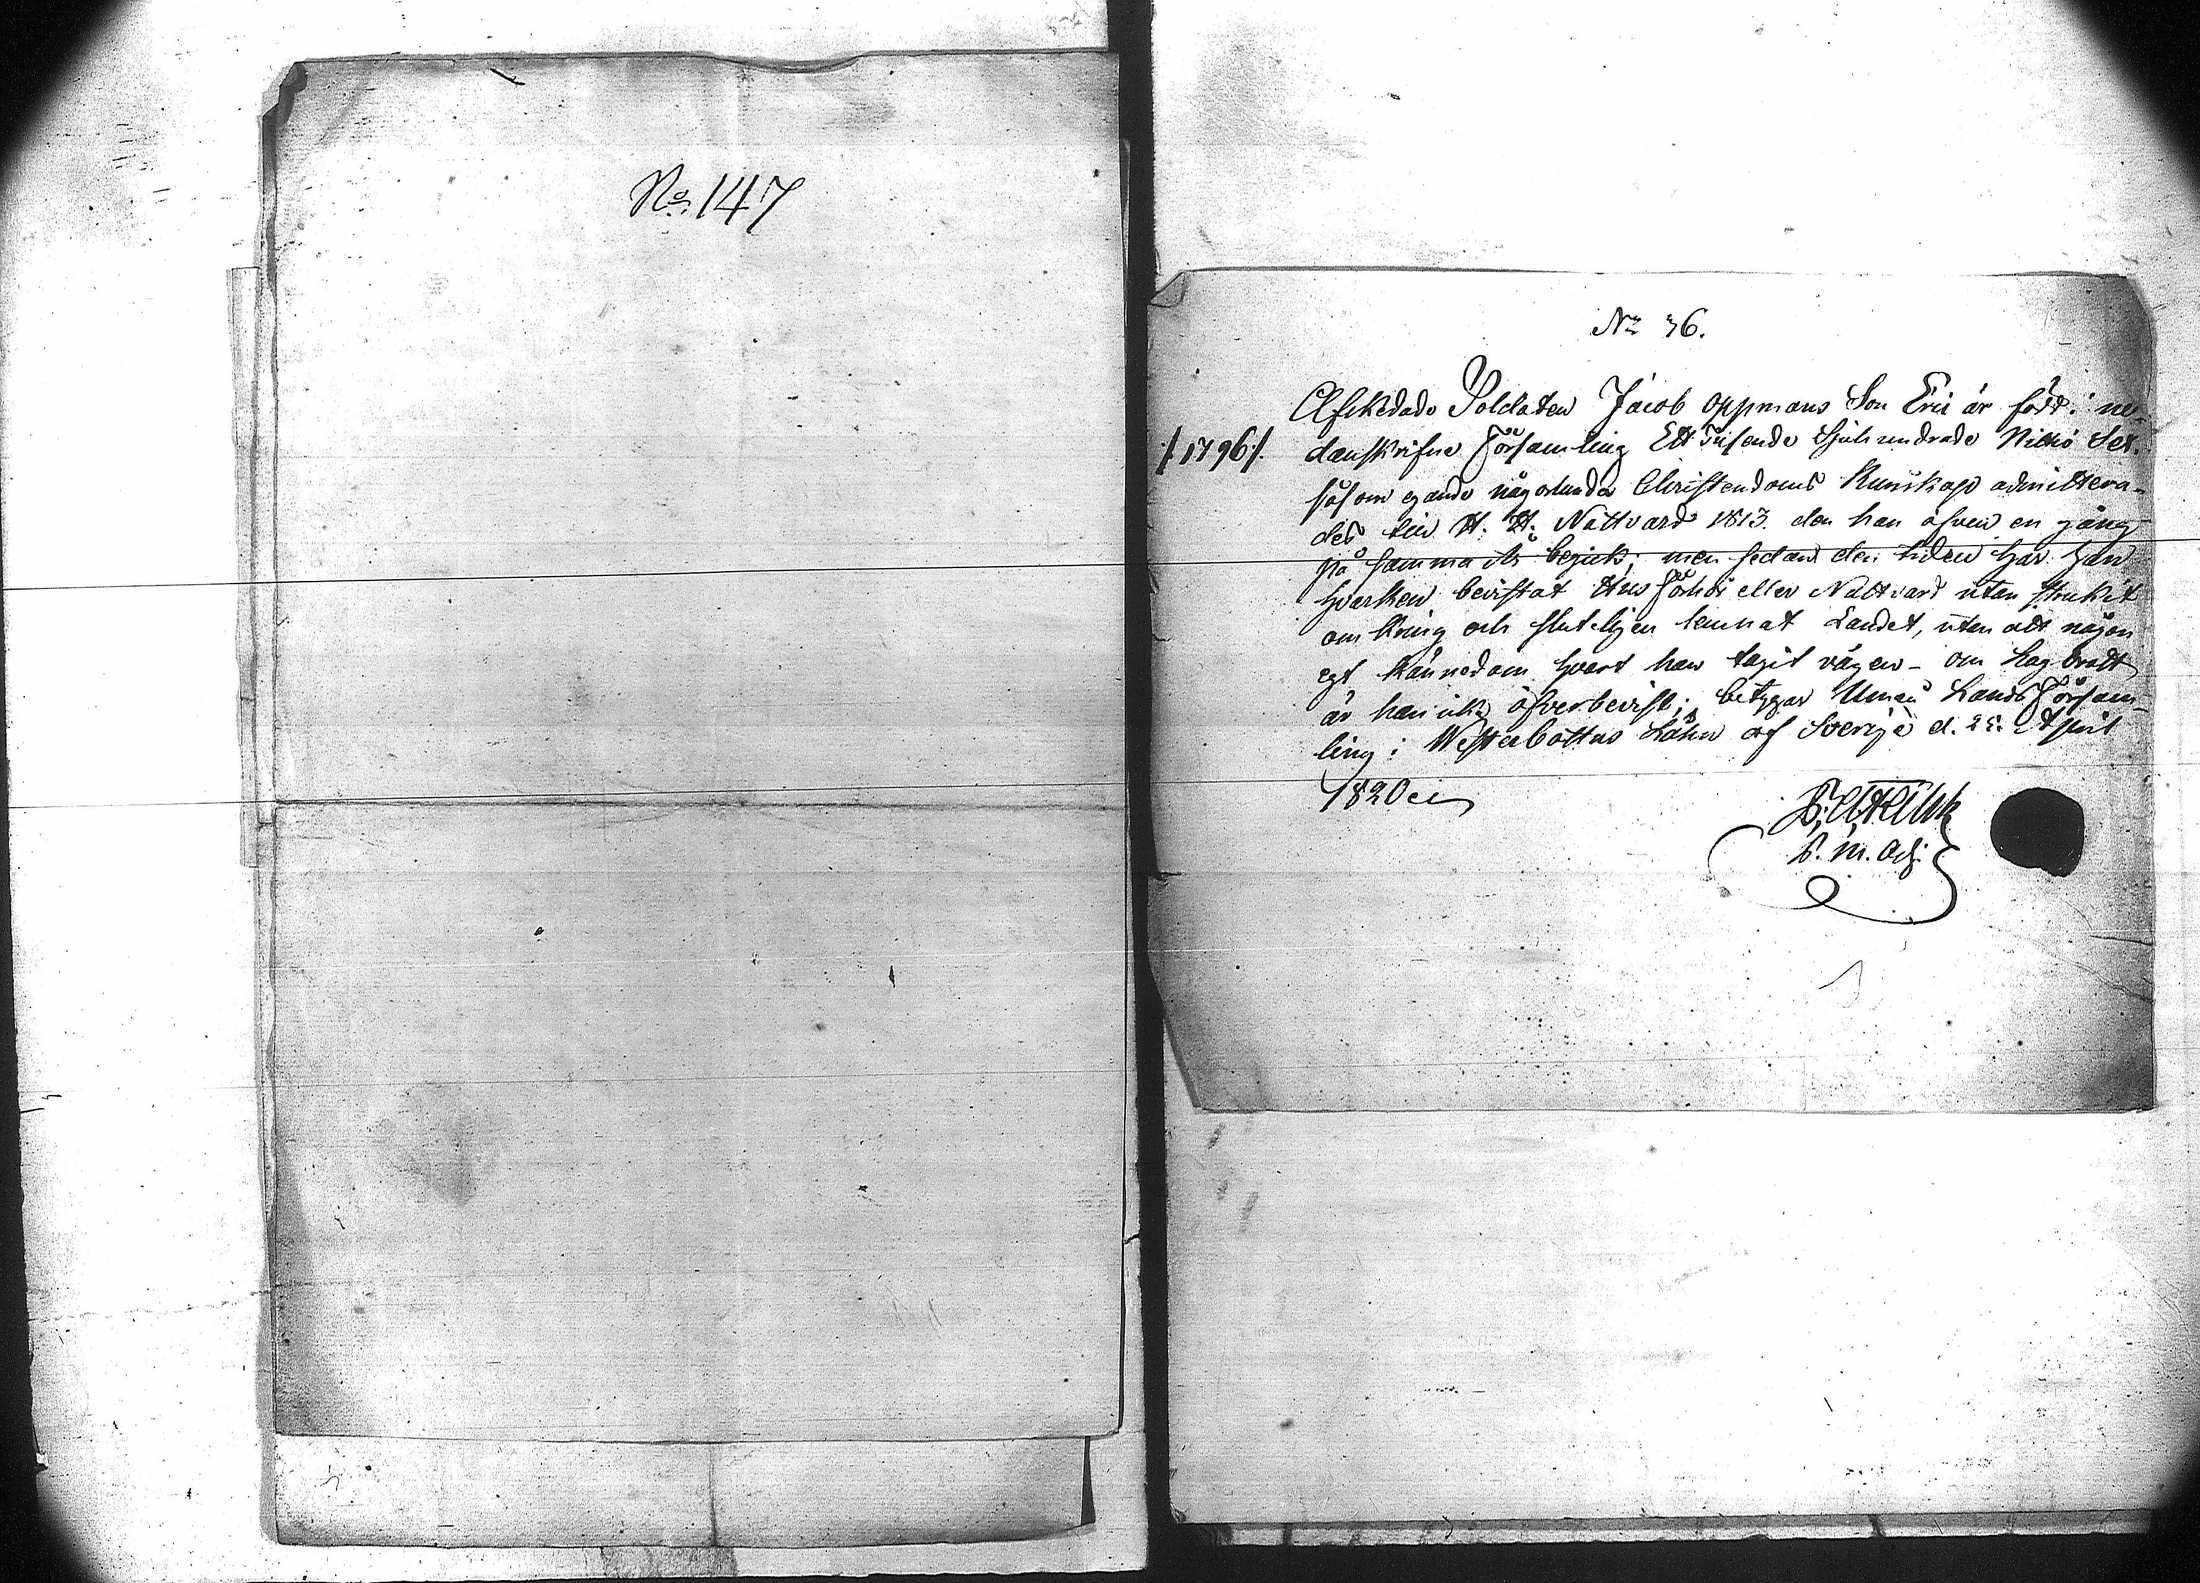 No. 147
No 36.
Afskedade Soldaten Jacob Oppmans Son Eric är född i ne-
/:1796:/. danskrifne Församling Ett Tusende Sjuhundrade Nitio Sex.
såsom egande någorlunda Christendoms Kunskap admittera-
des till H. H. Nattvard 1813. den han äfven en gång
på samma år begick; men sedan den tiden har han
hvarken bevistat Husförhör eller Nattvard utan strukit
omkring och slutligen lemnat Landet, utan att någon
egt kännedom hvart han tagit vägen – om Lagbrott
är han icke öfverbevist; betygar Umeå Lands Försam-
ling i Westerbottns Lähn af Sverige d. 25 April
1820
P. M. Adj.